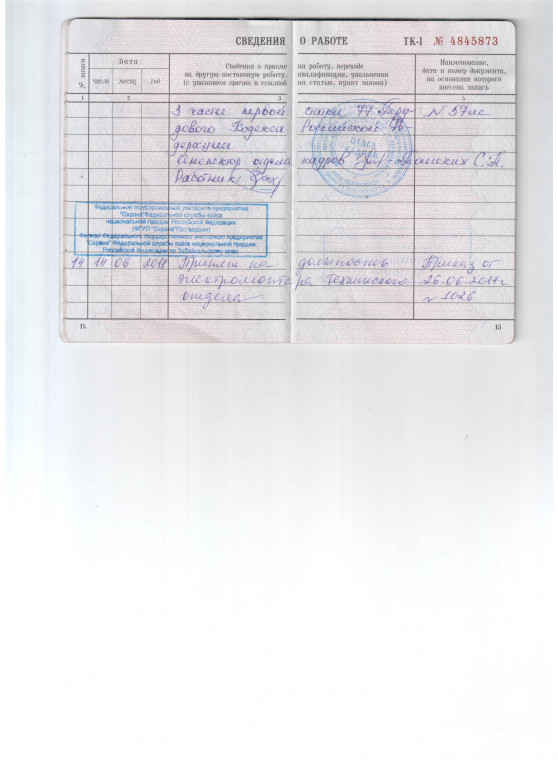 СВЕДЕНИЯ О РАБОТЕ ТК-I № 4845873
№ записи
Дата
число месяц год
Сведения о приеме на работу, переводе
на другую постоянную работу, квалификации, увольнении
(с указанием причин и ссылкой на статью, пункт закона)
Наименование,
дата и номер документа,
на основании которого
внесена запись
1 2 3 4
3 части первой статьи 77 Тру- N 57лс
дового Кодекса Российской
Федерации
Инспектор отдела кадров С.А.
Работник
ОТДЕЛ
КАДРОВ
Федеральное государственное унитарное предприятие
"Охрана" Федеральной службы войск
национальной гвардии Российской Федерации
(ФГУП "Охрана" Росгвардии)
Филиал Федерального государственного унитарного предприятия
"Охрана" Федеральной службы войск национальной гвардии
Российской Федерации по Забайкальскому краю
14 14 06 2017 Принят на должность Приказ от
электромонтера Технического 26-06-2017г
отдела N 1026
14 15